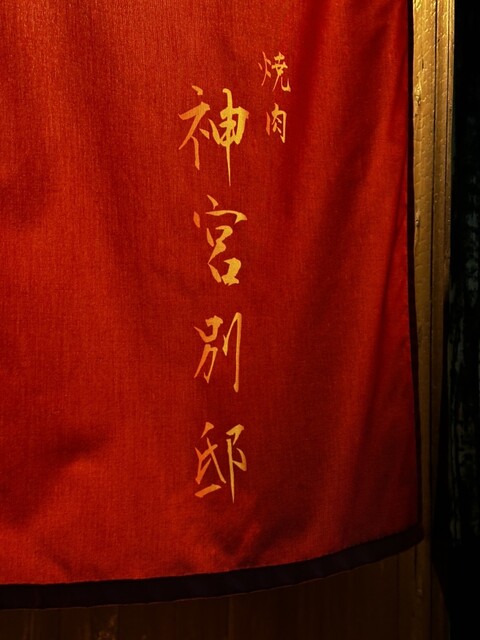 焼肉
神宮別邸